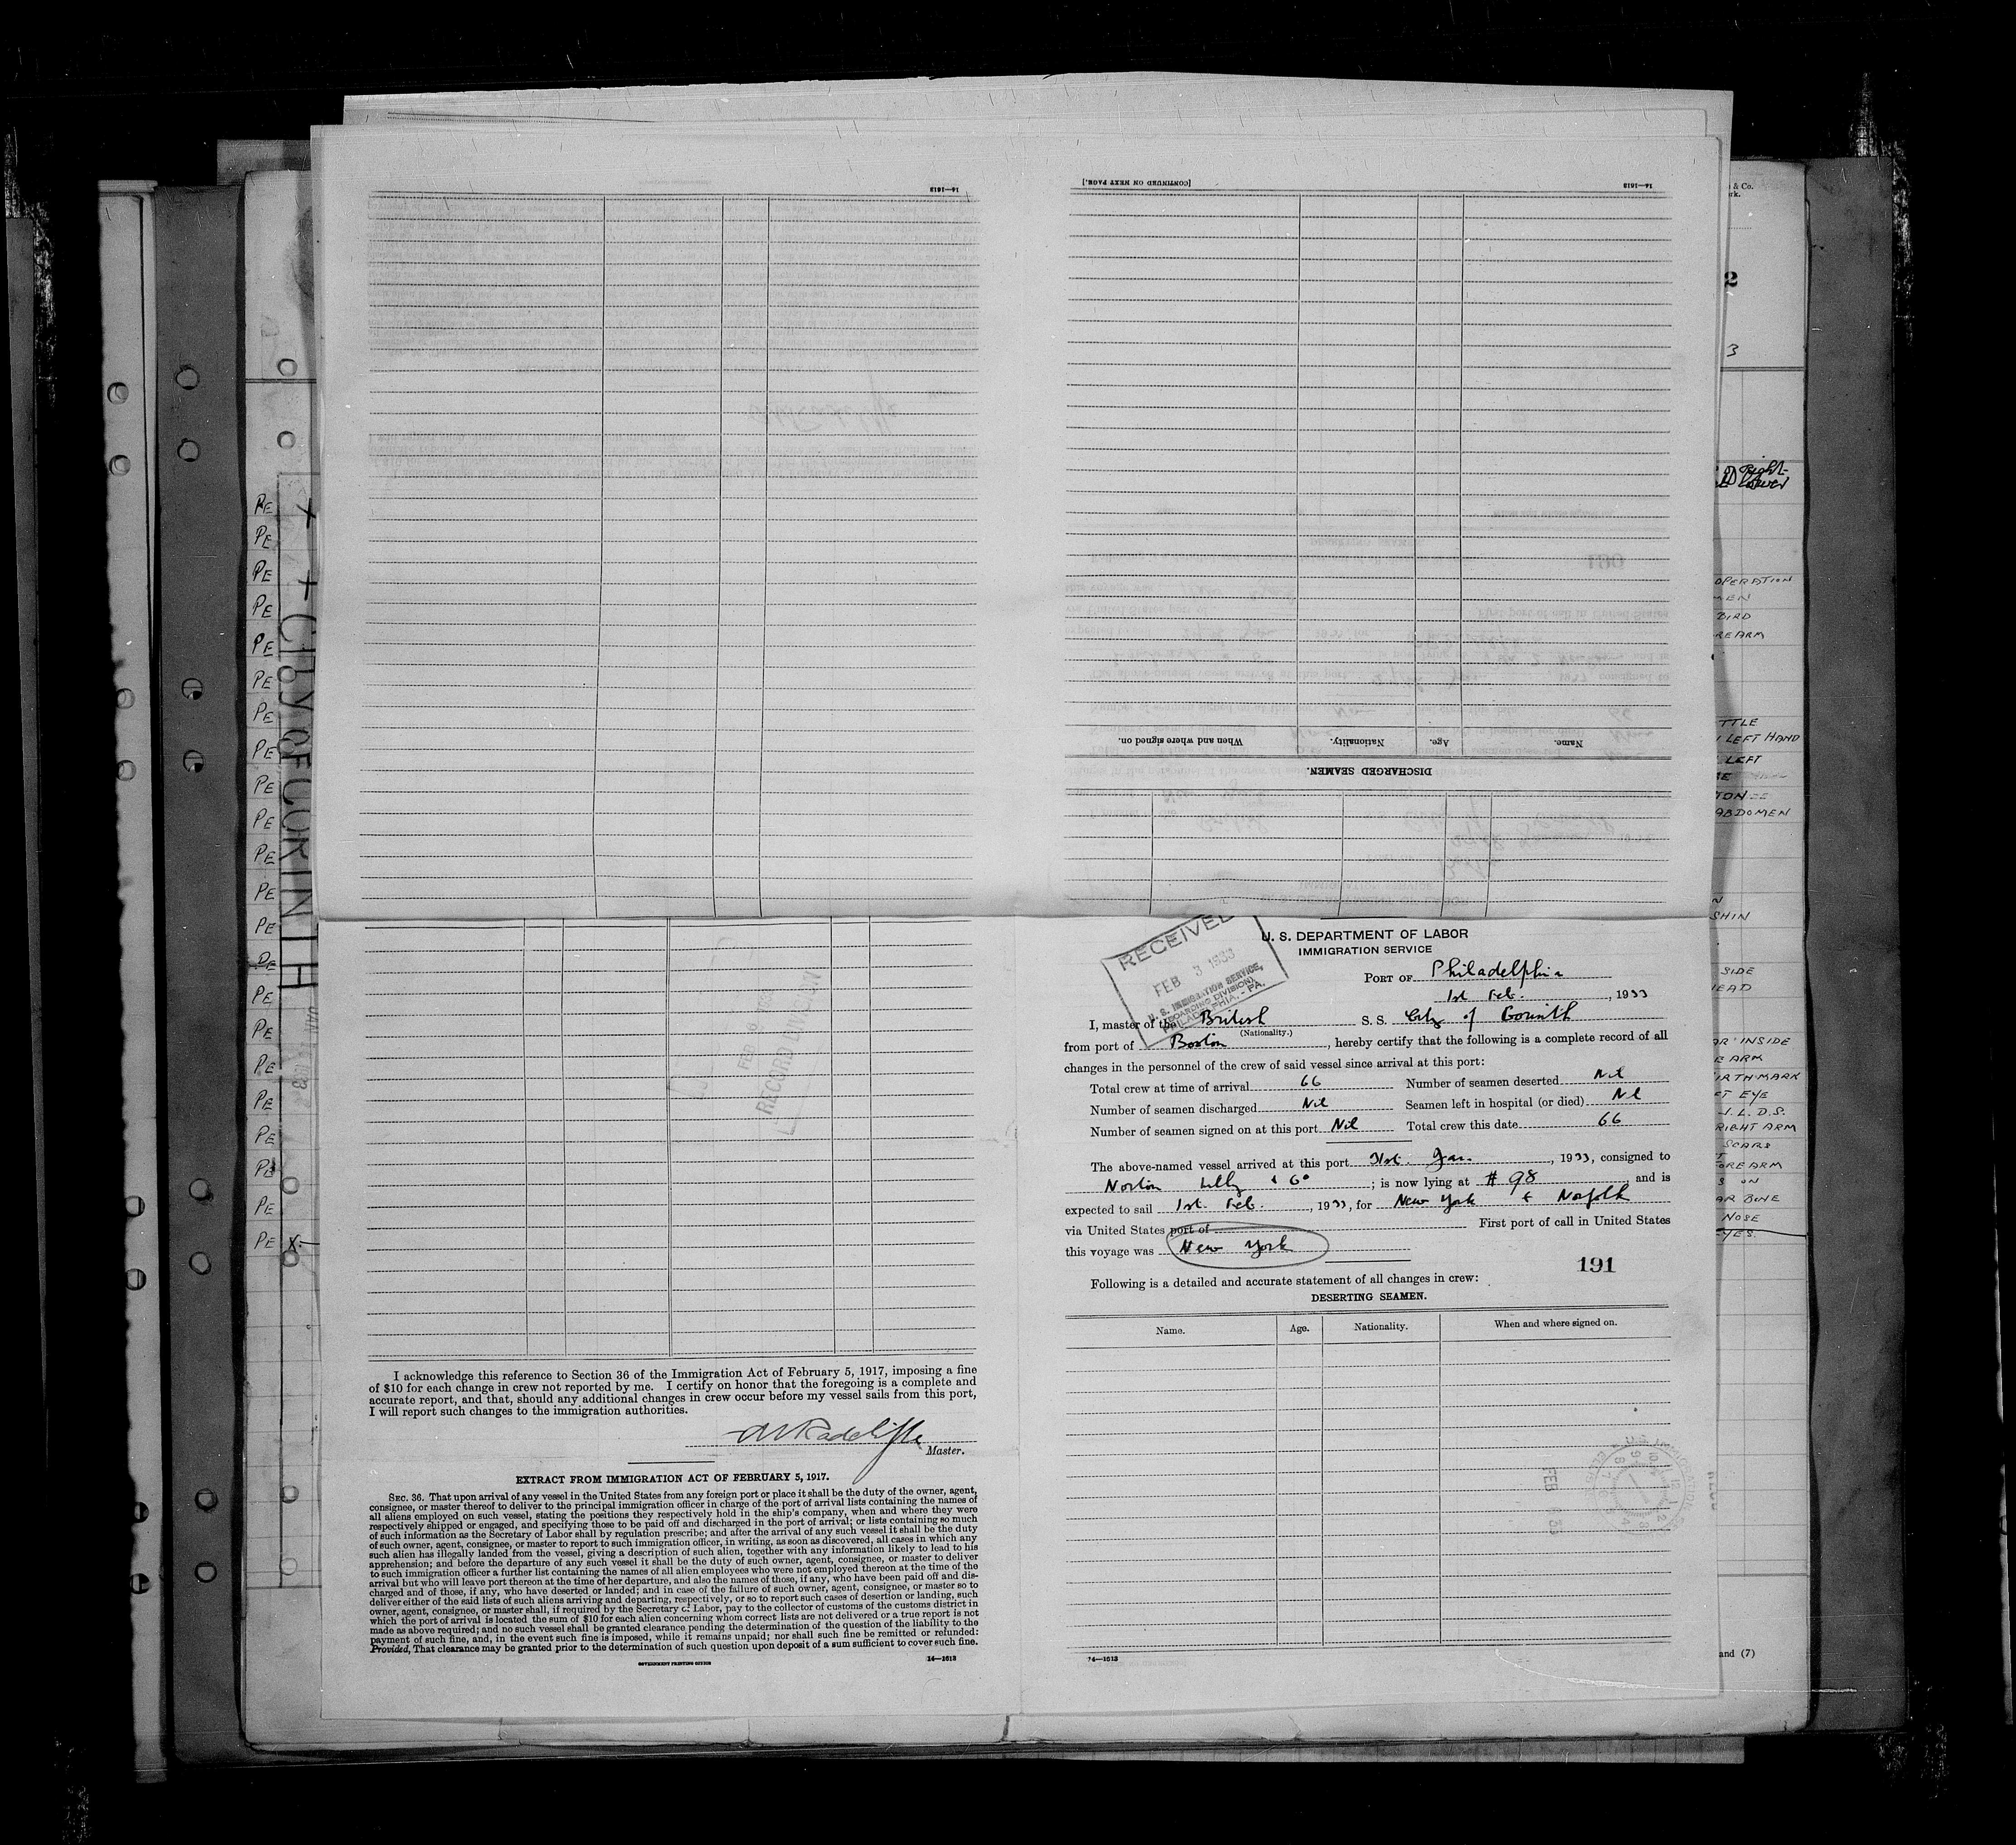 16—1613
[CONTINUED ON NEXT PAGE.]
16—1613
When and where signed on.
Nationality.
Age.
Name.
DISCHARGED SEAMEN.
CITY OF CORINTH
PE
PE
PE
PE
PE
PE
PE
PE
PE
PE
PE
PE
PE
PE
PE
PE
PE
PE
PE
PE
PE
PE X
FEB 6
RECORD DIVISION
I acknowledge this reference to Section 36 of the Immigration Act of February 5, 1917, imposing a fine
of $10 for each change in crew not reported by me. I certify on honor that the foregoing is a complete and
accurate report, and that, should any additional changes in crew occur before my vessel sails from this port,
I will report such changes to the immigration authorities.
Radcliffe
Master.
EXTRACT FROM IMMIGRATION ACT OF FEBRUARY 5, 1917.
SEC. 36. That upon arrival of any vessel in the United States from any foreign port or place it shall be the duty of the owner, agent,
consignee, or master thereof to deliver to the principal immigration officer in charge of the port of arrival lists containing the names of
all aliens employed on such vessel, stating the positions they respectively hold in the ship's company, when and where they were
respectively shipped or engaged, and specifying those to be paid off and discharged in the port of arrival; or lists containing so much
of such information as the Secretary of Labor shall by regulation prescribe; and after the arrival of any such vessel it shall be the duty
of such owner, agent, consignee, or master to report to such immigration officer, in writing, as soon as discovered, all cases in which any
such alien has illegally landed from the vessel, giving a description of such alien, together with any information likely to lead to his
apprehension; and before the departure of any such vessel it shall be the duty of such owner, agent, consignee, or master to deliver
to such immigration officer a further list containing the names of all alien employees who were not employed thereon at the time of the
arrival but who will leave port thereon at the time of her departure, and also the names of those, if any, who have been paid off and dis-
charged and of those, if any, who have deserted or landed; and in case of the failure of such owner, agent, consignee, or master so to
deliver either of the said lists of such aliens arriving and departing, respectively, or so to report such cases of desertion or landing, such
owner, agent, consignee, or master shall, if required by the Secretary of Labor, pay to the collector of customs of the customs district in
which the port of arrival is located the sum of $10 for each alien concerning whom correct lists are not delivered or a true report is not
made as above required; and no such vessel shall be granted clearance pending the determination of the question of the liability to the
payment of such fine, and, in the event such fine is imposed, while it remains unpaid; nor shall such fine be remitted or refunded:
Provided, That clearance may be granted prior to the determination of such question upon deposit of a sum sufficient to cover such fine.
GOVERNMENT PRINTING OFFICE
14—1613
RECEIVED
FEB 3 1933
U. S. IMMIGRATION SERVICE,
(BOARDING DIVISION)
PHILADELPHIA, - PA.
U. S. DEPARTMENT OF LABOR
IMMIGRATION SERVICE
PORT OF Philadelphia
1st Feb. , 1933
I, master of the British S. S. City of Corinth
(Nationality.)
from port of Boston, hereby certify that the following is a complete record of all
changes in the personnel of the crew of said vessel since arrival at this port:
Total crew at time of arrival 66 Number of seamen deserted Nil
Number of seamen discharged Nil Seamen left in hospital (or died) Nil
Number of seamen signed on at this port Nil Total crew this date 66
The above-named vessel arrived at this port 31st. Jan. , 1933, consigned to
Norton Lilly & Co ; is now lying at # 98 and is
expected to sail 1st. Feb. , 1933, for New York & Norfolk
via United States port of First port of call in United States
this voyage was New York
191
Following is a detailed and accurate statement of all changes in crew:
DESERTING SEAMEN.
Name. Age. Nationality. When and where signed on.
FEB 33
14—1613
& Co.
2
3
right
OPERATION
MEN
BIRD
REARM
TTLE
LEFT HAND
LEFT
ABDOMEN
SHIN
SIDE
EAD
AR INSIDE
E ARM
IRTHMARK
FT EYE
J.L.D.S.
RIGHT ARM
SCARS
FOREARM
S ON
AR BONE
NOSE
EYES.
and (7)